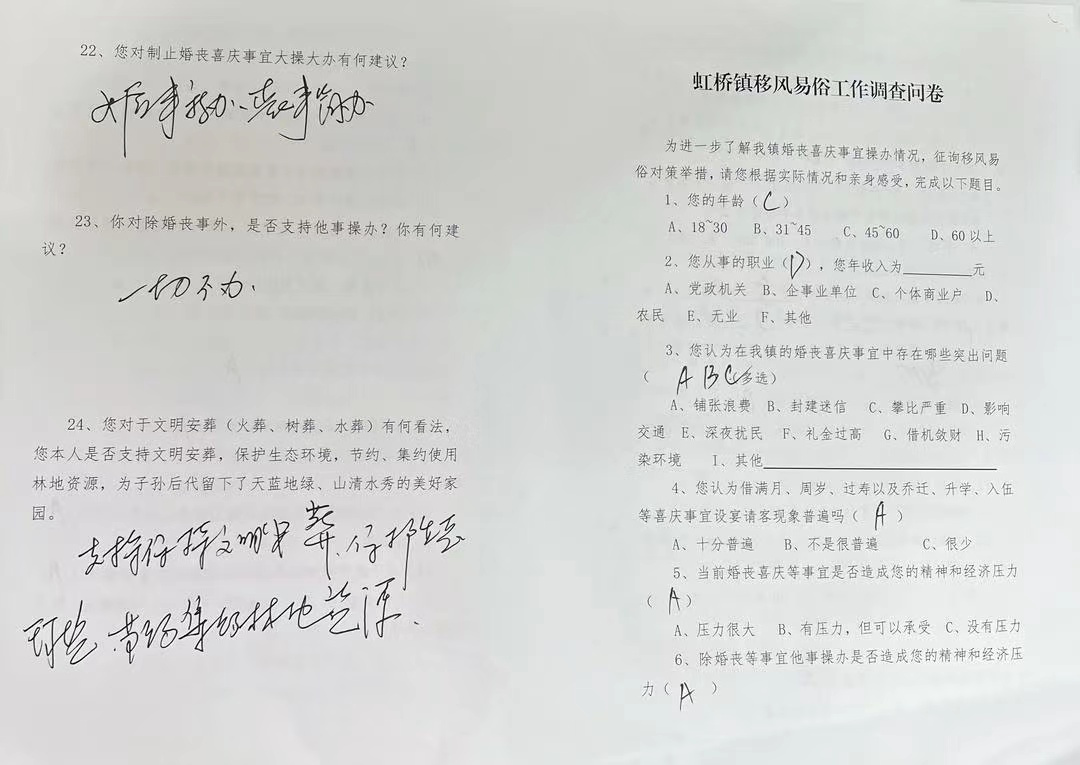 22、您对制止婚丧喜庆事宜大操大办有何建议？
婚事新办、丧事简办
23、你对除婚丧事外，是否支持他事操办？你有何建
议？
一切不办.
24、您对于文明安葬（火葬、树葬、水葬）有何看法，
您本人是否支持文明安葬，保护生态环境，节约、集约使用
林地资源，为子孙后代留下了天蓝地绿、山清水秀的美好家
园。
支持 文明安葬、保护生态
环境、节约集约林地资源.
虹桥镇移风易俗工作调查问卷
为进一步了解我镇婚丧喜庆事宜操办情况，征询移风易
俗对策举措，请您根据实际情况和亲身感受，完成以下题目。
1、您的年龄（C）
A、18~30 B、31~45 C、45~60 D、60以上
2、您从事的职业（D），您年收入为________元
A、党政机关 B、企事业单位 C、个体商业户 D、
农民 E、无业 F、其他
3、您认为在我镇的婚丧喜庆事宜中存在哪些突出问题
（ ABC 多选）
A、铺张浪费 B、封建迷信 C、攀比严重 D、影响
交通 E、深夜扰民 F、礼金过高 G、借机敛财 H、污
染环境 I、其他________________
4、您认为借满月、周岁、过寿以及乔迁、升学、入伍
等喜庆事宜设宴请客现象普遍吗（ A ）
A、十分普遍 B、不是很普遍 C、很少
5、当前婚丧喜庆等事宜是否造成您的精神和经济压力
（ A ）
A、压力很大 B、有压力，但可以承受 C、没有压力
6、除婚丧等事宜他事操办是否造成您的精神和经济压
力（ A ）